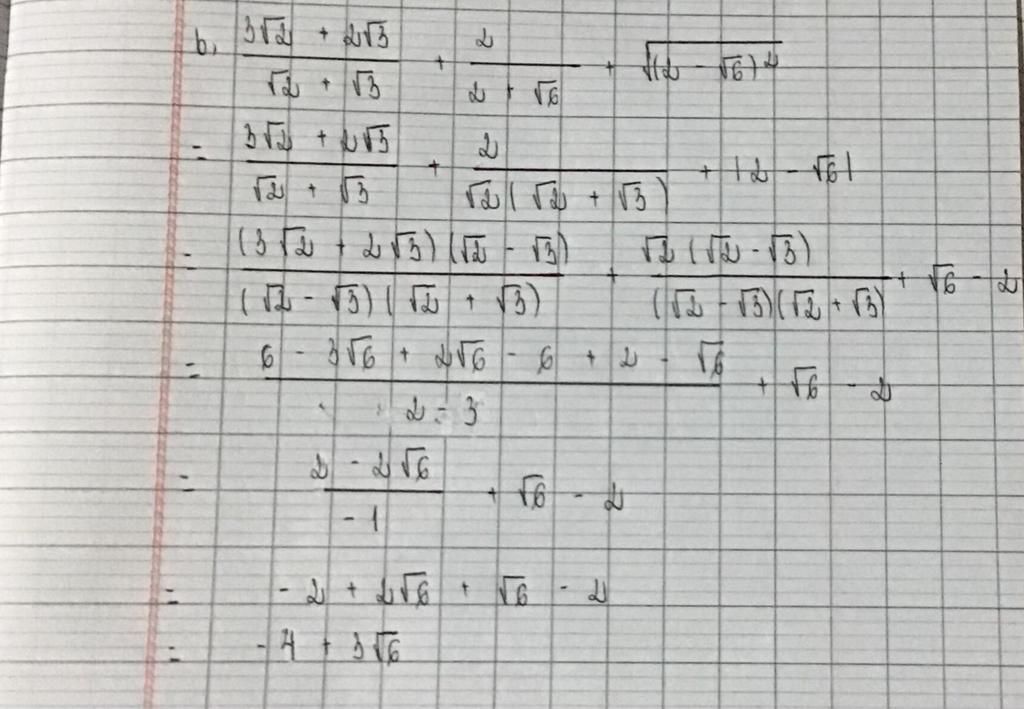 b, (3√2 + 2√3)/(√2 + √3) + 2/(2 + √6) + √((2 - √6)²)
= (3√2 + 2√3)/(√2 + √3) + 2/(√2(√2 + √3)) + |2 - √6|
= ((3√2 + 2√3)(√2 - √3))/((√2 - √3)(√2 + √3)) + (√2(√2 - √3))/((√2 - √3)(√2 + √3)) + √6 - 2
= (6 - 3√6 + 2√6 - 6 + 2 - √6)/(2 - 3) + √6 - 2
= (2 - 2√6)/(-1) + √6 - 2
= -2 + 2√6 + √6 - 2
= -4 + 3√6